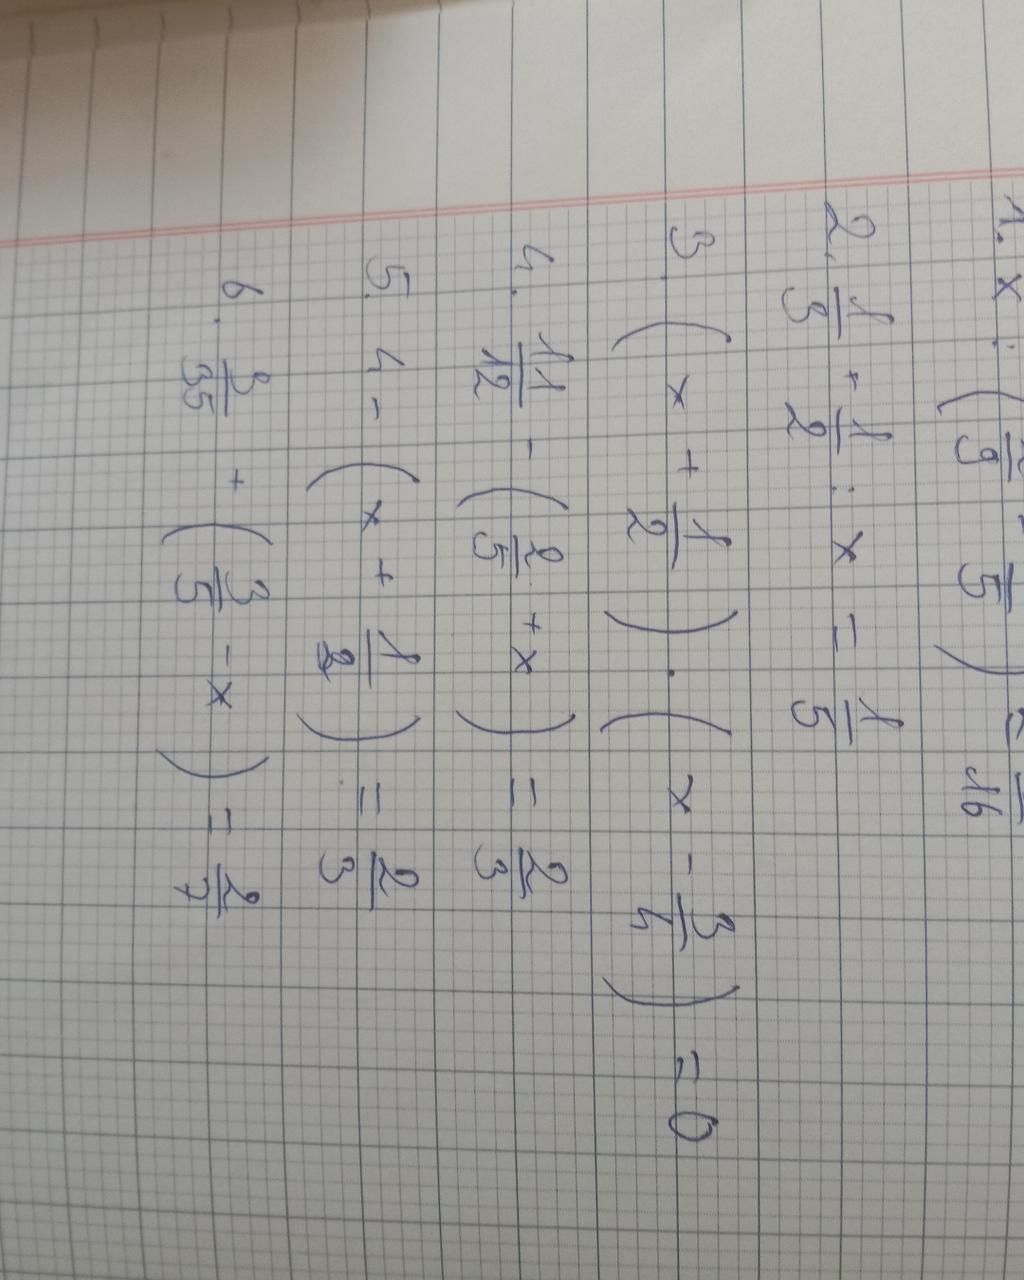 1. x : ( - /5 ) = /16
2. 1/3 + 1/2 : x = 1/5
3. ( x + 1/2 ) · ( x - 3/4 ) = 0
4. 11/12 - ( 2/5 + x ) = 2/3
5. 4 - ( x + 1/2 ) = 2/3
6. 3/35 + ( 3/5 - x ) = 2/7